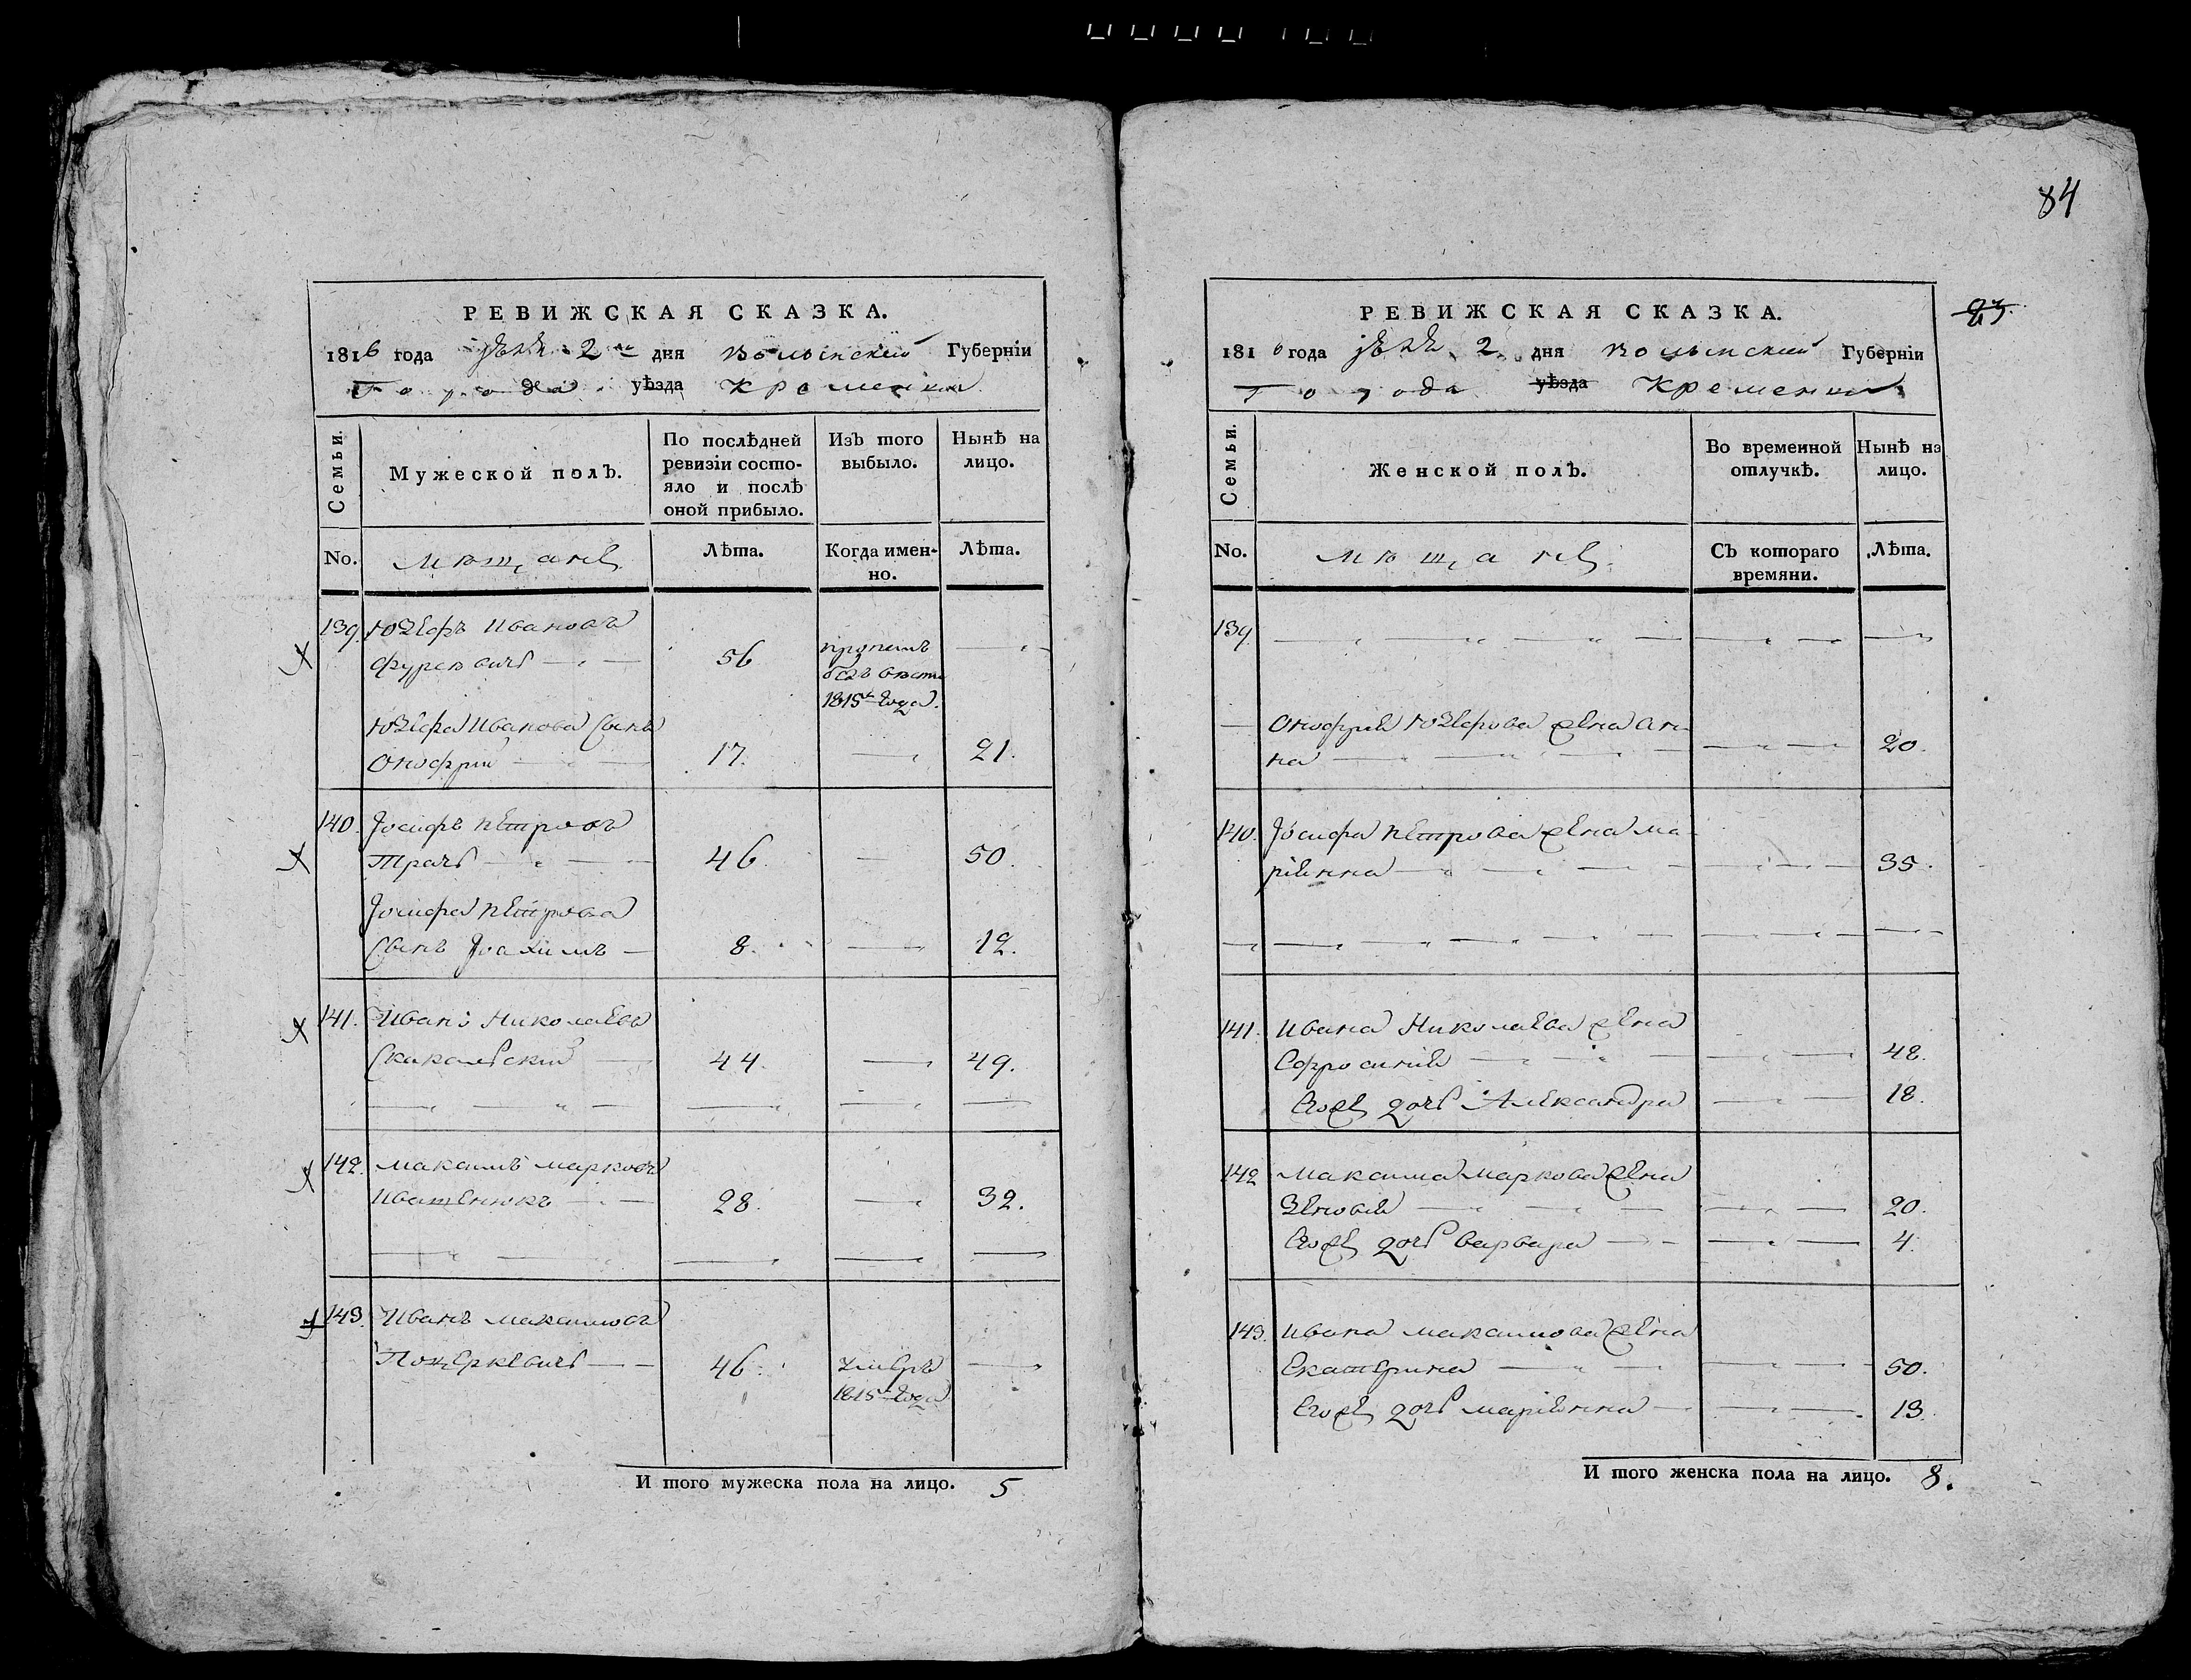 84
РЕВИЖСКАЯ СКАЗКА.
1816 года 2 го дня волынской Губернiи
Города уѣзда кременца
Семьи.
Мужеской полъ.
По послѣдней ревизiи состо-
яло и послѣ оной прибыло.
Изъ того выбыло.
Нынѣ на лицо.
No.
мѣщане
Лѣта.
Когда имен-
но.
Лѣта.
139. Юзефъ Ивановъ
Фуревичь 56 пропалъ
безъ вести
1815го года.
Юзефа Иванова сынъ
Онофрiй 17. 21.
140. Iосифъ Петровъ
Трачь 46. 50.
Iосифа Петрова
сынъ Iоахимъ 8. 12.
141. Иванъ Николаевъ
Скакальский 44. 49.
142. Максимъ Марковъ
Ивашенюкъ 28. 32.
143. Иванъ Максимовъ
46. умеръ
1815го года
И того мужеска пола на лицо. 5
РЕВИЖСКАЯ СКАЗКА.
25.
1816 года 2 дня волынской Губернiи
Города уѣзда Кременца
Семьи.
Женской полъ.
Во временной отлучкѣ.
Нынѣ на лицо.
No.
мѣщане.
Съ котораго времяни.
Лѣта.
139
Онофрiя Юзефова жена Ан-
на 20.
140. Iосифа Петрова жена Ма-
рiянна 35.
141. Ивана Николаева жена
Ефросинiя 48.
Егоже дочь Александра 18.
142 Максима Маркова жена
Зеновiя 20.
Егоже дочь Варвара 4.
143. Ивана Максимова жена
Екатерина 50.
Егоже дочь Марiянна 13.
И того женска пола на лицо. 8.